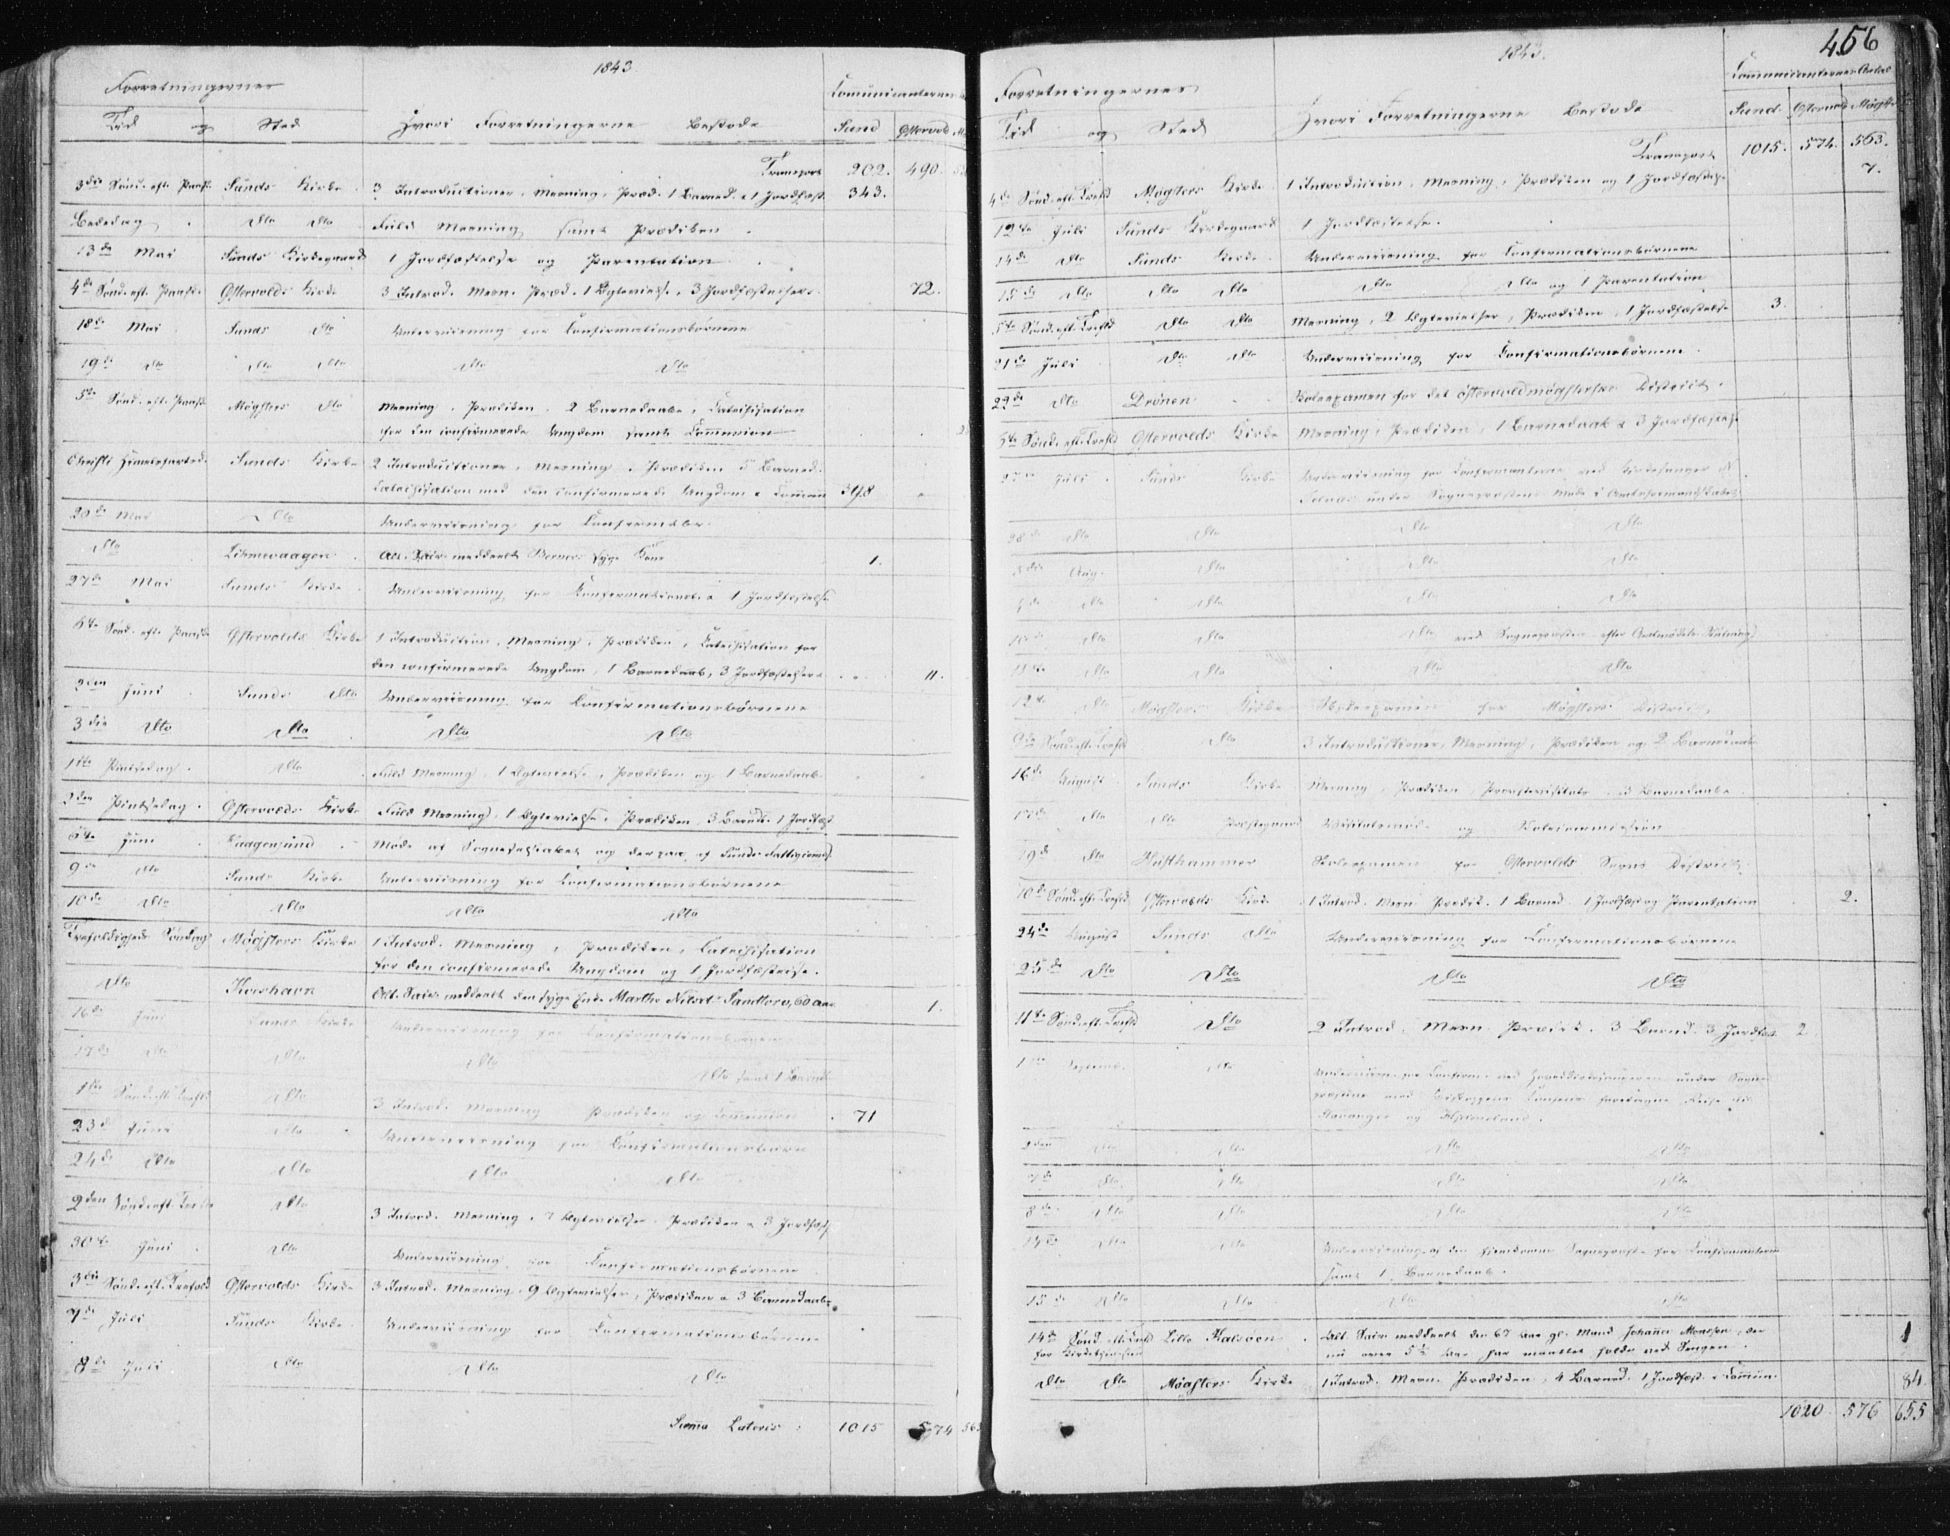 1843
Forretningernes
Communicanternes
Tid og Sted
Hvori Forretningerne bestode
Sund Østervold
Transport 202. 490.
3die Sønd. eft. Paaske Sunds Kirke 3 Introductioner, Messning, Præd. 1 Barned. & 1 Jordfæst. 343.
Bededag Dto Dto Fuld Messning samt Prædiken
13de Mai Sunds Kirkegaard 1 Jordfæstelse og Parentation
4de Sønd. eft. Paaske Østervolds Kirke 3 Introd. Mesn. Præd. 1 Ægtevielse, 3 Jordfæstelser 72.
18de Mai Sunds Dto Underviisning for Confirmationsbørnene
19de Dto Dto Dto Dto Dto
5te Sønd. eft. Paaske Møgsters Dto Messning, Prædiken, 2 Barnedaabe, Catechisation
for den confirmerede Ungdom samt Communion
Christi Himmelfartsd. Sunds Kirke 2 Introductioner, Messning, Prædiken 5 Barned.
Catechisation med den confirmerede Ungdom & Commun 398
26de Mai Dto Underviisning for Confirmabr.
Dto Liknevaagen Alt. Sacr. meddeelt syge Kone 1.
27de Mai Sunds Kirke Underviisning for Confirmationsb. & 1 Jordfæstelse
6te Sønd. eft. Paaske Østervolds Kirke 1 Introduction, Messning, Prædiken, Catechisation for
den confirmerede Ungdom, 1 Barnedaab, 3 Jordfæstelser 11.
2den Juni Sunds Dto Underviisning for Confirmationsbørnene
3die Dto Dto Dto Dto
1ste Pintsedag Dto Fuld Messning, 1 Ægtevielse, Prædiken og 1 Barnedaab
2den Pintsedag Østervolds Kirke Fuld Messning, 1 Ægtevielse, Prædiken, 3 Barned. 1 Jordfæst
6te Juni Vaagesund Møde af Sognefelskabet og derpaa af Sunds Fattigcomm.
9de Dto Sunds Kirke Underviisning for Confirmationsbørnene
10de Dto Dto Dto Dto
Trefoldigheds Søndag Møgsters Kirke 1 Introd. Messning, Prædiken, Catechisation
for den confirmerede Ungdom og 1 Jordfæstelse.
Dto Korshavn Alt. Sacr. meddeelt den syge Enke Marthe Nilsd. Sandtorv, 60 Aar 1.
16de Juni Sunds Kirke Underviisning for Confirmationsbørnene
17de Dto Dto Dto Dto samt 1 Barned.
1ste Sønd. eft. Trefold Dto 3 Introd. Messning Prædiken og Communion 71
23de Juni Dto Underviisning for Confirmationsbørn
24de Dto Dto Dto Dto
2den Sønd. eft. Trefo Dto 3 Introd. Messning, 7 Ægtevielser Prædiken & 3 Jordfæst
30te Juni Dto Underviisning for Confirmationsbørnene
3die Sønd. eft. Trefold Østervolds Kirke 3 Introd. Messning, 9 Ægtevielser, Prædiken & 3 Barnedaabe
7de Juli Sunds Kirke Underviisning for Confirmationsbørnene
8de Juli Dto Dto Dto
Summa Lateris 1015 574 563
1843.
456
Forretningernes
Communicanternes Antal
Tid og Sted
Hvori Forretningerne bestode
Sund Østervold Møgster
Transport 1015. 574. 563.
4de Sønd. eft. Trefold Møgsters Kirke 1 Introduction, Messning, Prædiken og 1 Jordfæstelse 7.
12te Juli Sunds Kirkegaard 1 Jordfæstelse.
14de Dto Sunds Kirke Underviisning for Confirmationsbørnene
15de Dto Dto Dto Dto Dto og 1 Parentation
5te Sønd. eft. Trefold Dto Dto Messning, 2 Ægtevielser, Prædiken, 1 Jordfæstelse 3.
21de Juli Dto Dto Underviisning for Confirmationsbørnene
22de Dto Drönen Skoleexamen for det østervoldmøgsterske District.
6te Sønd. eft. Trefold Østervolds Kirke Messning, Prædiken, 1 Barnedaab & 3 Jordfæstelse
27de Juli Sunds Kirke Underviisning for Confirmanterne ved Kirkesanger
under Sognepræstens Møde i Amtsformandskabet
28de Dto Dto Dto Dto
3die Aug. Dto Dto Dto
4de Dto Dto Dto Dto
10de Dto Dto Dto ved Sognepræsten efter Amtmødets Slutning
11te Dto Dto Dto Dto
12te Dto Møgsters Kirke Skoleexamen for Møgsters District
9de Sønd. eft. Trefold Dto 3 Introductioner, Messning, Prædiken og 2 Barnedaabe
16de August Sunds Kirke Messning, Prædiken, Provstevisitats, 3 Barnedaabe
17de Dto Dto Præstegaard Visitatsmøde og Skolecommission
19de Dto Hufthammer Skoleexamen for Østervolds Sogns District
10de Sønd. eft. Trefold Østervolds Kirke 1 Introd. Mesn. Prædik. 1 Barned. 1 Jordfæst og Parentation 2.
24de August Sunds Dto Underviisning for Confirmationsbørnene
25de Dto Dto Dto Dto
11te Sønd. eft. Trefold Dto 2 Introd. Mesn. Prædik. 3 Barned. 3 Jordfæst. 2
1ste Septemb. Dto Underviisn. for Confirm. ved under Sogne
præstens med foretagne Reise til
Stavanger og
2den Dto Dto Dto Dto
7de Dto Dto Dto Dto
8de Dto Dto Dto Dto
14de Dto Dto Underviisning af den hjemkomne Sognepræst for Confirmanterne
samt 1 Barnedaab.
15de Dto Dto Dto Dto
14de Sønd. eft. Trefold Lille Kalsøen Alt. Sacr. meddeelt den 67 Aar gl. Mand Johannes Monsen, der
for Kirketjenesten nu over 5 1/2 Aar har maattet holde ved Sengen. 1
Dto Dto Møgsters Kirke 1 Introd. Mesn. Prædiken, 4 Barned. 1 Jordfæst. & Commun. 84.
1020 576 655